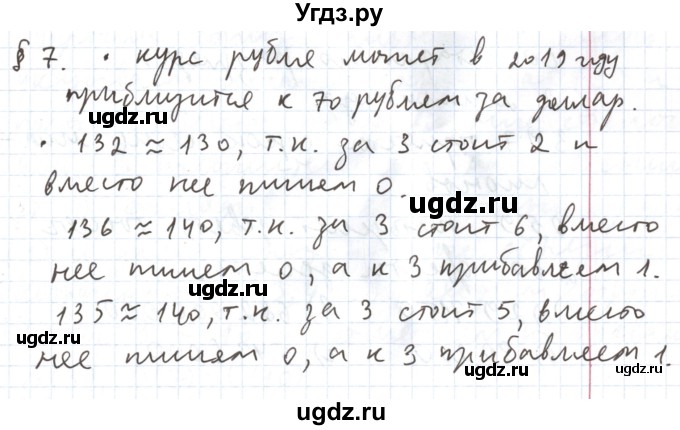 Угдз.ру
§ 7. • курс рубля может в 2019 году
приблизится к 70 рублям за доллар.
• 132 ≈ 130, т.к. за 3 стоит 2 и
вместо нее пишем 0.
ugdz.ru
136 ≈ 140, т.к. за 3 стоит 6, вместо
нее пишем 0, а к 3 прибавляем 1.
ugdz.ru
135 ≈ 140, т.к. за 3 стоит 5, вместо
ugdz.ru
нее пишем 0, а к 3 прибавляем 1.
ugdz.ru
ugdz.ru